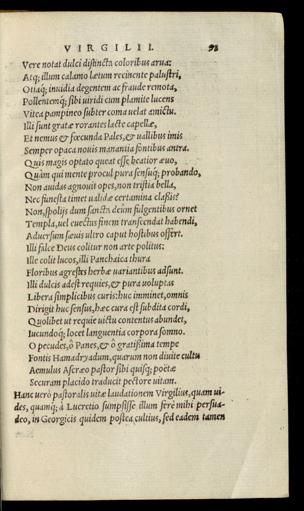 VIRGILII. 92
Vere notat dulci distincta coloribus arua:
Atq; illum calamo lætum recinente palustri,
Otiaq; inuidia degentem ac fraude remota,
Pollentemq; sibi uiridi cum plamite lucens
Vitea pampineo subter coma uelat amictu.
Illi sunt gratæ rorantes lacte capellæ,
Et nemus & fœcunda Pales, & uallibus imis
Semper opaca nouis manantia fontibus antra.
Quis magis optato queat esse beatior æuo,
Quàm qui mente procul pura sensuq; probando,
Non auidas agnouit opes, non tristia bella,
Nec funesta timet ualidæ certamina classis?
Non, spolijs dum sancta deûm fulgentibus ornet
Templa, uel euectus finem transcendat habendi,
Aduersum sæuis ultro caput hostibus offert.
Illi falce Deus colitur non arte politus:
Ille colit lucos, illi Panchaica thura
Floribus agrestes herbæ uariantibus adsunt.
Illi dulcis adest requies, & pura uoluptas
Libera simplicibus curis: huc imminet, omnis
Dirigit huc sensus, hæc cura est subdita cordi,
Quolibet ut requie uictu contentus abundet,
Iucundoq; locet languentia corpora somno.
O pecudes, ô Panes, & ô gratissima tempe
Fontis Hamadryadum, quarum non diuite cultu
Aemulus Ascræo pastor sibi quisq; poëtæ
Securam placido traducit pectore uitam.
Hanc uerò pastoralis uitæ laudationem Virgilius, quam ui-
des, quamq; à Lucretio sumpsisse illum ferè mihi persua-
deo, in Georgicis quidem postea cultius, sed eadem tamen